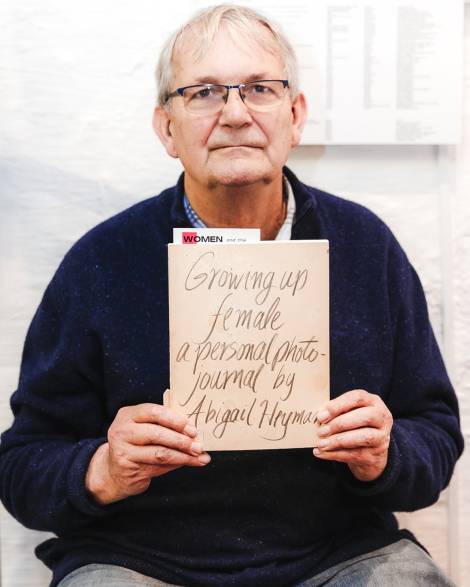 WOMEN and the
Growing up
female
a personal photo-
journal by
Abigail Heyman